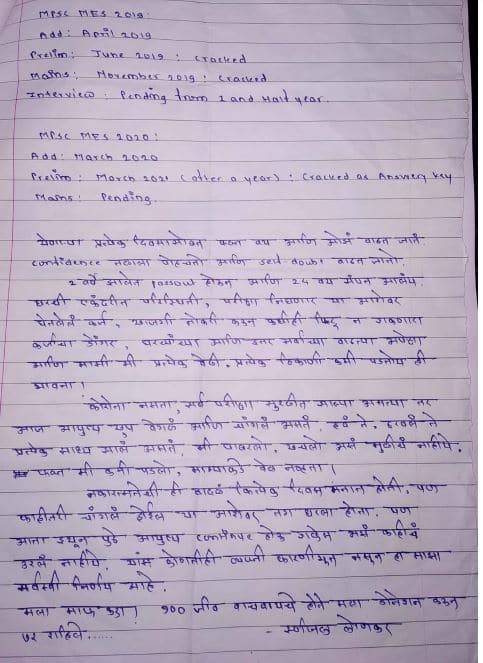 MPSC MES 2019:
Add: April 2019
Prelim: June 2019: Cracked
Mains: November 2019: Cracked
Interview: Pending from 2 and Half year.
MPSC MES 2020:
Add: March 2020
Prelim: March 2021 (after a year): Cracked as Answery key
Mains: Pending.
येणाऱ्या प्रत्येक दिवसासोबत फक्त वय आणि ओझं वाढत जातं.
confidence तळाला पोहचतो आणि self doubt वाढत जातो.
2 वर्षे झालेत passout होऊन आणि 24 वय संपत आलंय.
घरची एकंदरीत परिस्थिती, परीक्षा निघणार या आशेवर
घेतलेलं कर्ज, खाजगी नोकरी करून कधीही फिटू न शकणारा
कर्जाचा डोंगर, घरच्यांच्या आणि इतर सर्वांच्या वाढत्या अपेक्षा
आणि मी प्रत्येक वेळी, प्रत्येक ठिकाणी कमी पडतोय ही
भावना!
कोरोना नसता, सर्व परीक्षा सुरळीत झाल्या असत्या तर
आज आयुष्य खूप वेगळं आणि चांगलं असतं. हवं ते, ठरवलं ते
प्रत्येक साध्य झालं असतं. मी घाबरलो, खचलो असं मुळीच नाहीये.
फक्त मी कमी पडलो, माझ्याकडे वेळ नव्हता!
नकारात्मतेची ही वादळं कित्येक दिवस मनात होती, पण
काहीतरी चांगलं होईल या आशेवर तग धरला होता. पण
आता इथून पुढे आयुष्य continue होऊ शकेल असं काहीच
उरलं नाहीये. यास कोणतीही व्यक्ती कारणीभूत नसून हा माझा
सर्वस्वी निर्णय आहे.
मला माफ करा! 100 जीव वाचवायचे होते मला डोनेशन करून
72 राहिले......
- स्वप्निल लोणकर